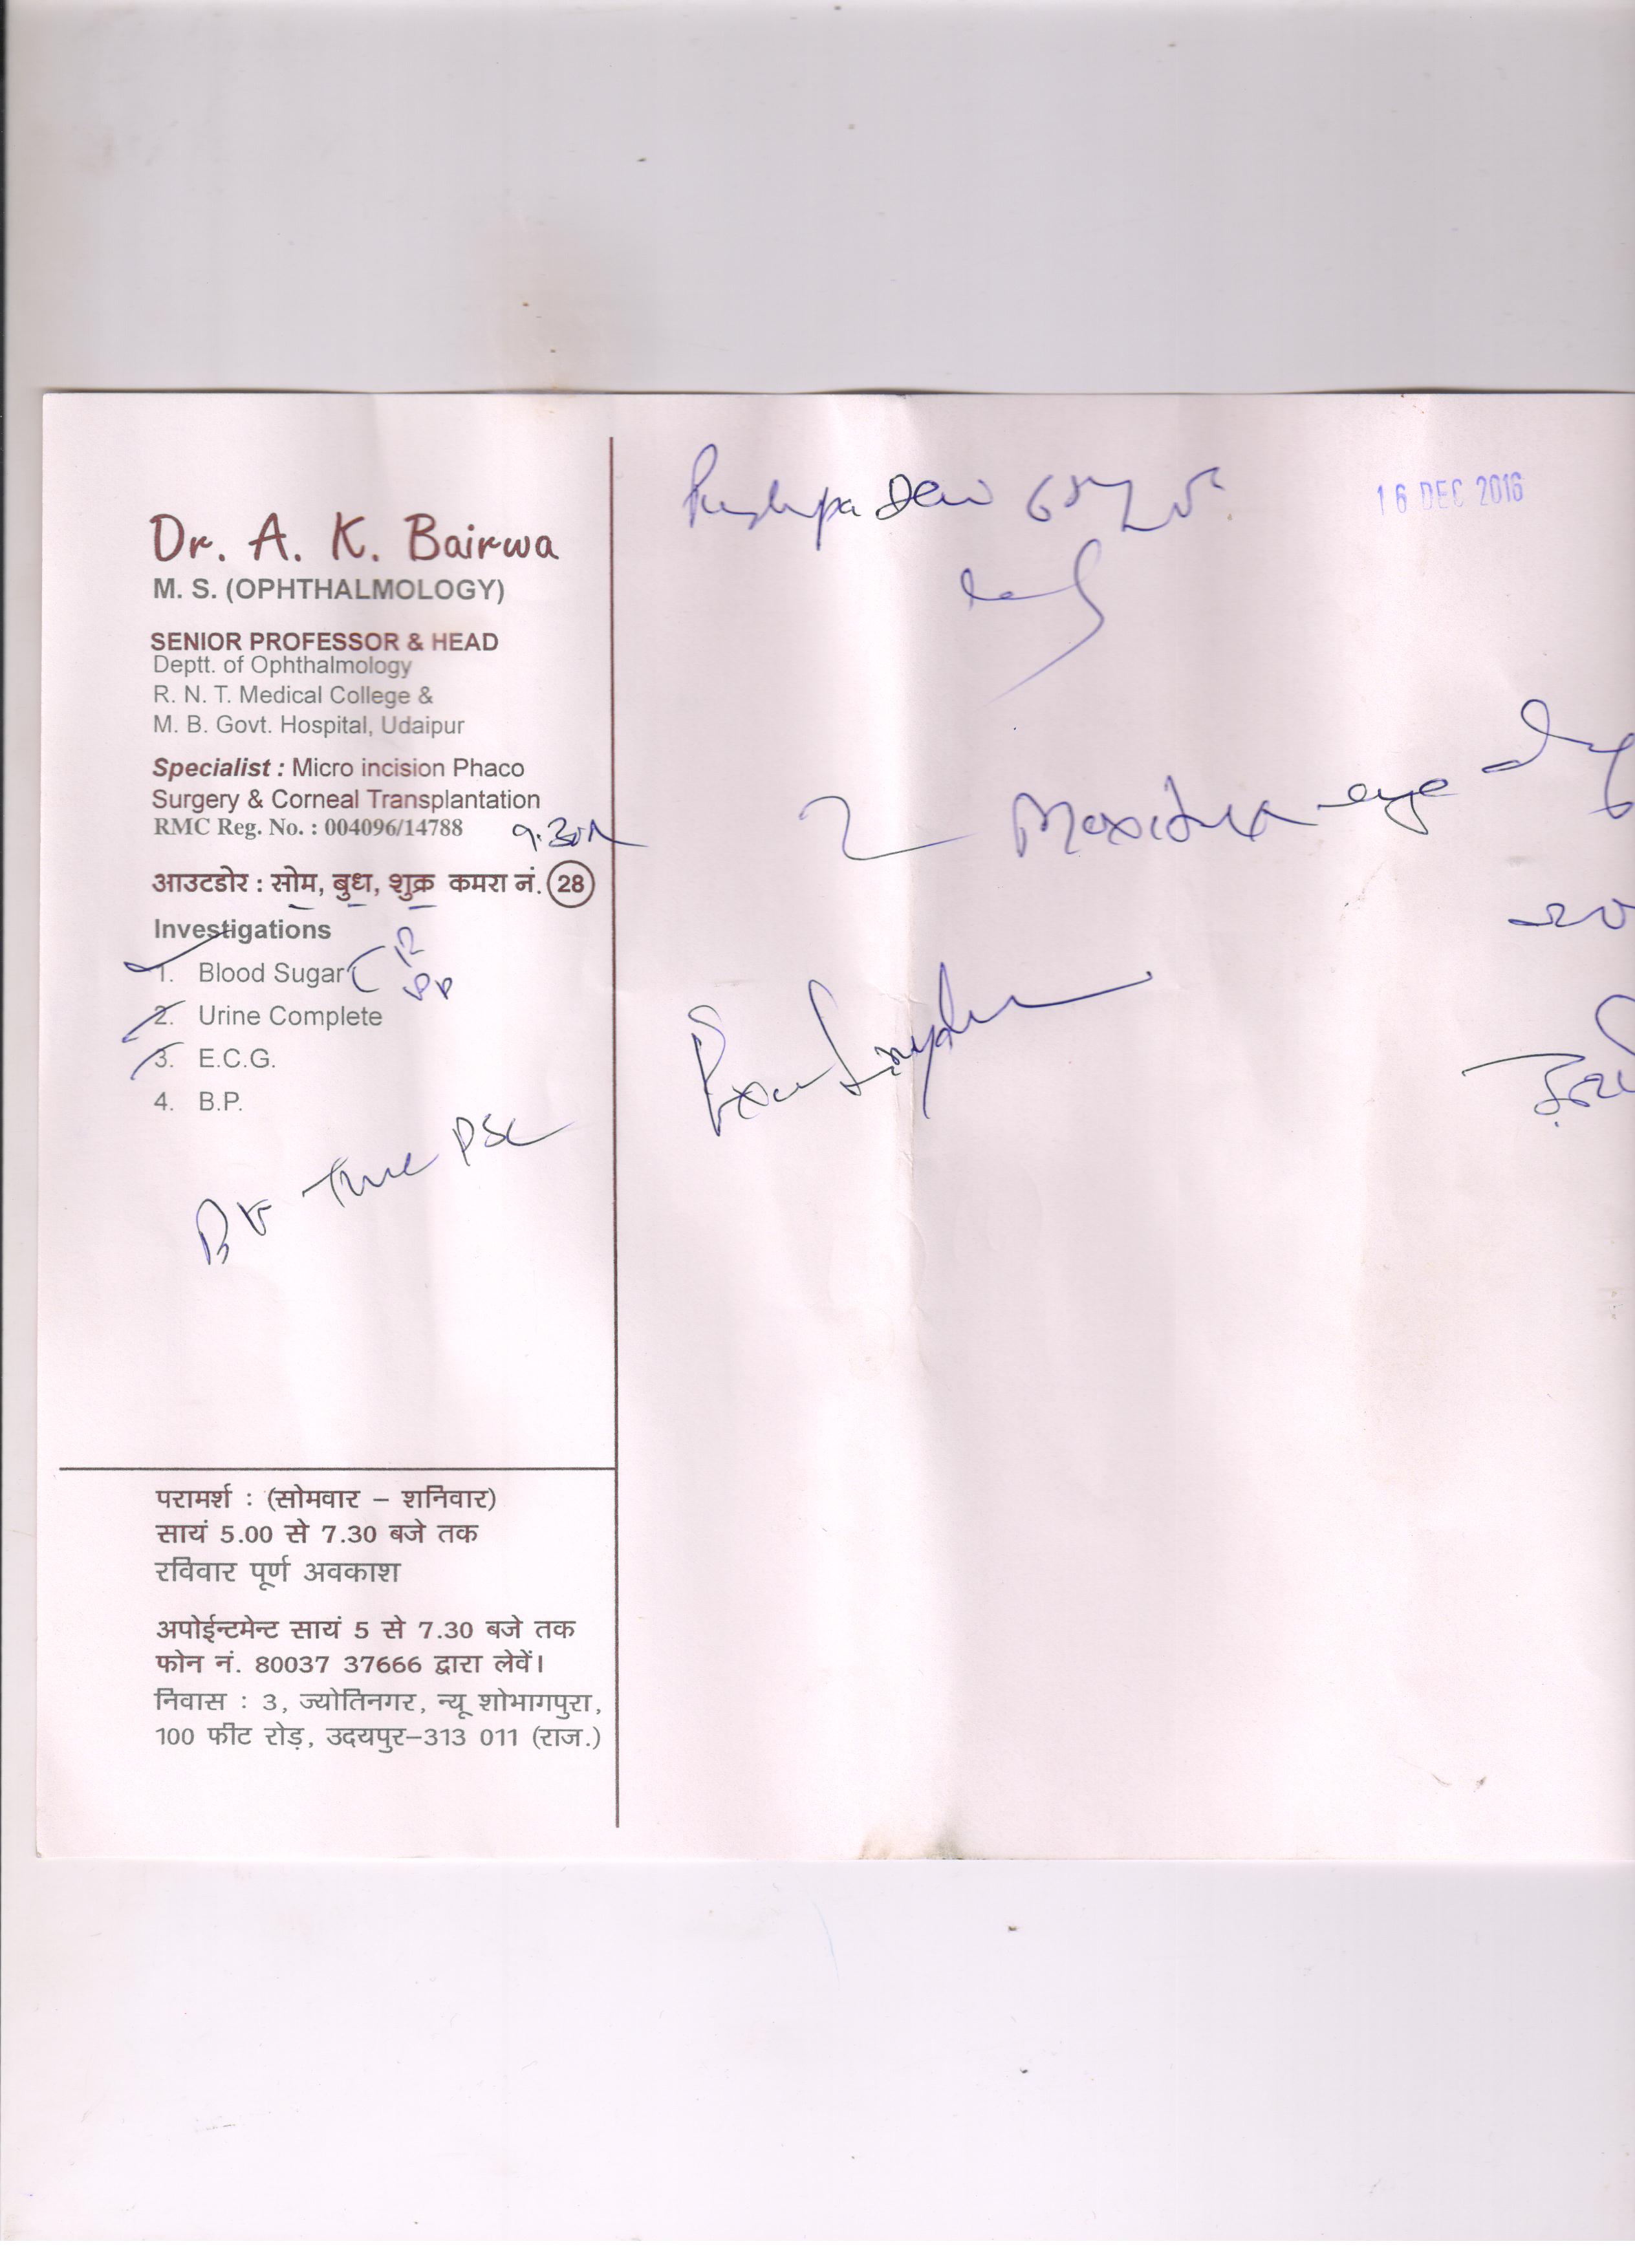 Pushpa Devi
16 DEC 2016
Dr. A. K. Bairwa
M. S. (OPHTHALMOLOGY)
SENIOR PROFESSOR & HEAD
Deptt. of Ophthalmology
R. N. T. Medical College &
M. B. Govt. Hospital, Udaipur
Specialist : Micro incision Phaco
Surgery & Corneal Transplantation
RMC Reg. No. : 004096/14788
9.30
आउटडोर : सोम, बुध, शुक्र कमरा नं. 28
Investigations
1. Blood Sugar
2. Urine Complete
3. E.C.G.
4. B.P.
eye
PSC
परामर्श : (सोमवार – शनिवार)
सायं 5.00 से 7.30 बजे तक
रविवार पूर्ण अवकाश
अपोईन्टमेन्ट सायं 5 से 7.30 बजे तक
फोन नं. 80037 37666 द्वारा लेवें।
निवास : 3, ज्योतिनगर, न्यू शोभागपुरा,
100 फीट रोड़, उदयपुर–313 011 (राज.)